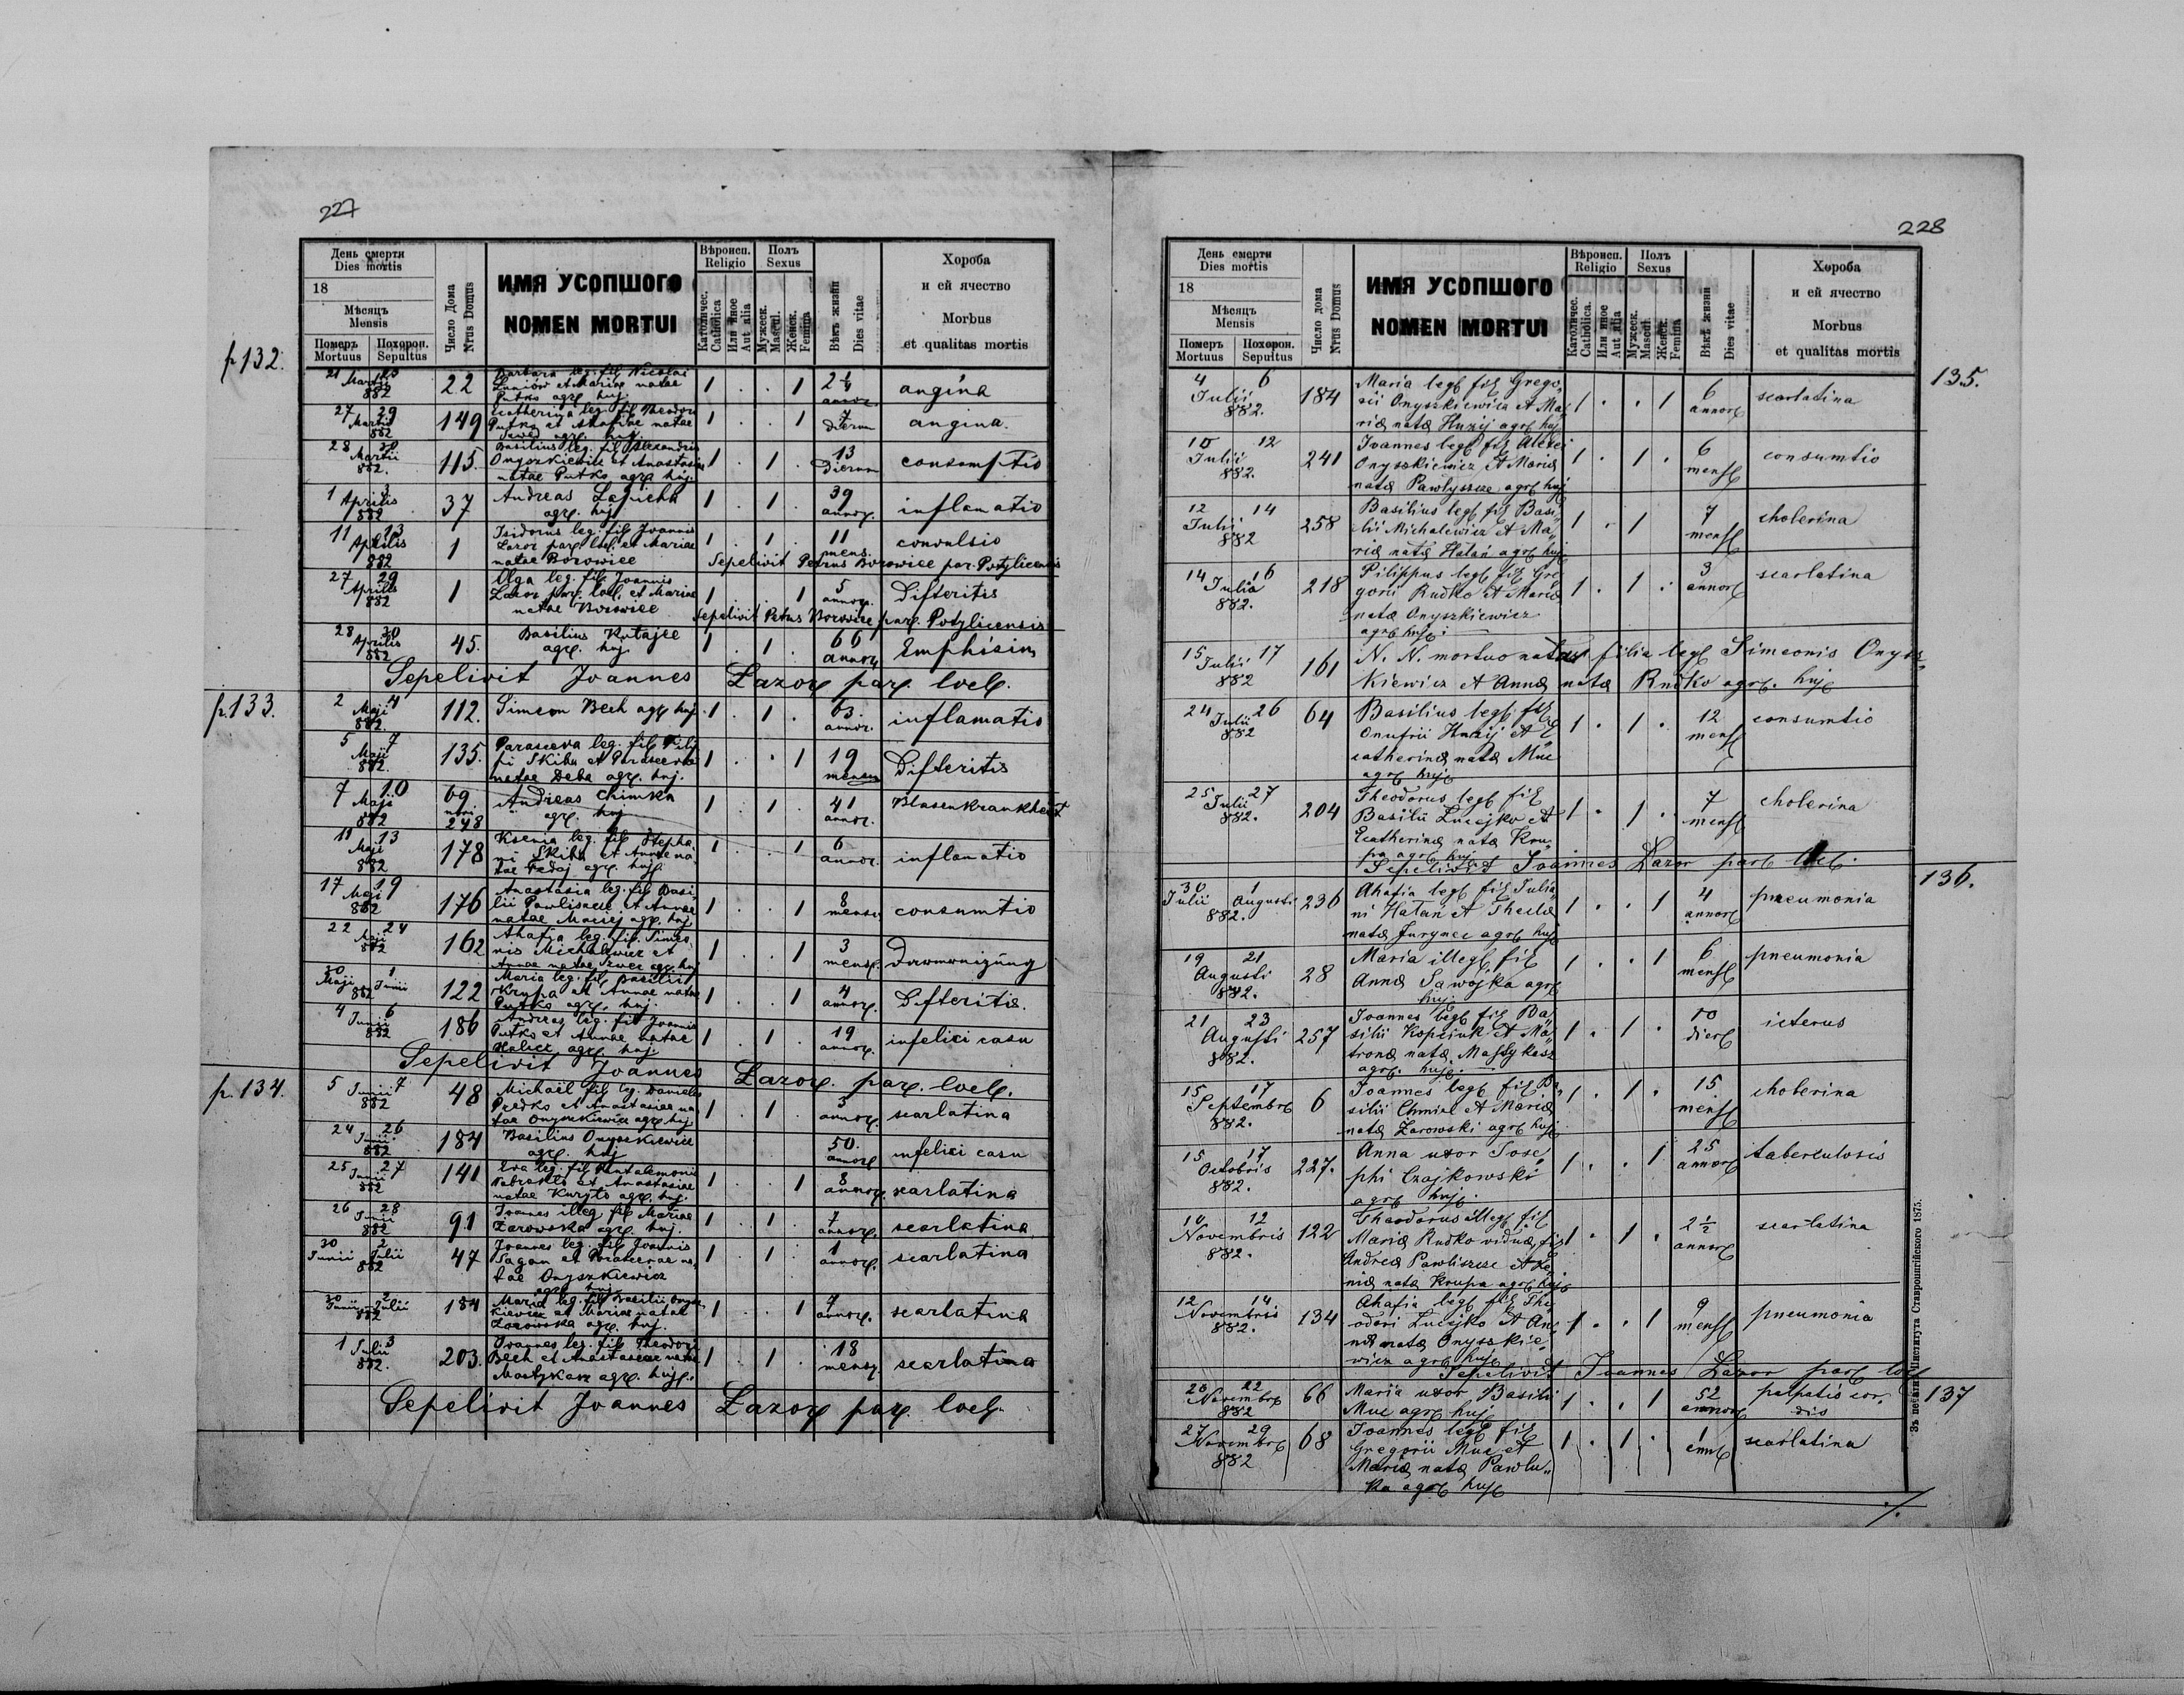 227
День смерти
Dies mortis
18
Мѣсяцъ
Mensis
Померъ Mortuus
Похорон. Sepultus
Число Дома
Nrus Domus
ИМЯ УСОПШОГО
NOMEN MORTUI
Вѣроисп.
Religio
Католичес.
Catholica
Или иное
Aut alia
Полъ
Sexus
Мужеск.
Mascul.
Женск.
Femina
Вѣкъ жизни
Dies vitae
Хороба
и ей ячество
Morbus
et qualitas mortis
p 132.
21 Martii 23 882 22 Barbara leg. fil. Nicolai
Luniów et Mariae natae
Putko agr. huj. 1 . . 1 2 1/4 annor. angina
27 Martii 29 882 149 Ecatherina leg. fil. Theodori
Putko et Ahafiae natae
agr. huj. 1 . . 1 7 dierum angina.
28 Martii 30 882. 115. Basilius leg. fil. Alexandri
Onyszkiewicz et Anastasiae
natae Putko agr. huj. 1 . 1 . 13 Dierum consumptio
1 Aprilis 3 882 37 Andreas Lapicha
agr. huj 1 . 1 . 39 annor. inflamatio
11 Aprilis 13 882 1 Isidorus leg. fil. Joannis
Lazor par. loc. et Mariae
natae Borowiec 1 . 1 . 11 mens. convulsio
Sepelivit Petrus Borowiec par. Potylicensis
27 Aprilis 29 882 1 Olga leg. fil. Joannis
Lazor par. loc. et Mariae
natae Borowiec 1 . . 1 5 annor. Difteritis
Sepelivit Petrus Borowiec par. Potylicensis
28 Aprilis 30 882 45. Basilius Kutajec
agr. huj 1 . 1 . 66 annor Emphisim
Sepelivit Joannes Lazor par. loc.
p. 133.
2 Maji 4 882. 112. Simeon Bech agr huj. 1 . 1 . 63. annor. inflamatio
5 Maji 7 882. 135. Parasceva leg. fil. Filip
pi Skiba et Parascevae
natae Deba agr. huj. 1 . . 1 19 mensium Difteritis
7 Maji 10 882 69 mori. 248 Andreas Chimka
agr. huj 1 . 1 . 41 annor. Blasenkrankheit
11 Maji 13 882 178 Ksenia leg. fil. Stepha
ni Skiba et Annae na
tae Fedaj agr. huj. 1 . . 1 6 annor. inflamatio
17 Maji 19 882 176 Anastasia leg. fil. Basi
lii Pawliszcze et Annae
natae Maciej agr. huj. 1 . . 1 8 mens consumtio
22 Maji 24 882 162 Ahafia leg. fil. Simeo
nis Michalewicz et
Annae natae Szwec agr. huj 1 . . 1 3 mens.
30 Maji 1 Junii 882 122 Maria leg. fil. Basilii
Krupa et Annae natae
Putko agr. huj. 1 . . 1 4 annor. Difteritis.
4 Junii 6 882 186 Andreas leg. fil Joannis
Putko et Annae natae
Halicz agr. huj. 1 . 1 . 19 annor. infelici casu
Sepelivit Joannes Lazor. par. loc.
p. 134.
5 Junii 7 882 48 Michael fil leg. Danielis
Predko et Anastasiae na
tae Onyszkiewicz agr. huj. 1 . 1 . 3 annor. scarlatina
24 Junii 26 882 184 Basilius Onyszkiewicz
agr. huj 50. annor infelici casu
25 Junii 27 882 141 Eva leg. fil. Pantalemonis
et Anastasiae
natae Kuryło agr. huj. 1 . . 1 8 annor. scarlatina
26 Junii 28 882 91 Joannes illeg. fil. Mariae
Zarowska agr. huj. 1 . 1 . 7 annor. scarlatina
30 Junii 2 Julii 882 47 Joannes leg. fil. Joannis
Pagan et Parascevae na
tae Onyszkiewicz
agr. huj. 1 . 1 . 1 annor. scarlatina
30 Junii 2 Julii 882 184 Maria leg. fil. Basilii Onysz
kiewicz et Mariae natae
Zarowska agr. huj. 1 . . 1 7 annor. scarlatina
1 Julii 3 882. 203. Joannes leg. fil. Theodori
Bech et Anastasiae natae
Mastykasz agr. huj. 1 . 1 . 18 mens scarlatina
Sepelivit Joannes Lazor par. loc.
228
День смерти
Dies mortis
18
Мѣсяцъ
Mensis
Померъ Mortuus
Похорон. Sepultus
Число дома
Nrus Domus
ИМЯ УСОПШОГО
NOMEN MORTUI
Вѣроисп.
Religio
Католичес.
Catholica.
Или иное
Aut alia
Полъ
Sexus
Мужеск.
Mascul.
Женск.
Femina
Вѣкъ жизни
Dies vitae
Хороба
и ей ячество
Morbus
et qualitas mortis
135.
4 Julii 6 882. 184 Maria leg fil Grego„
rii Onyszkiewicz et Ma„
riæ natæ Hnzij agr huj 1 . . 1 6 annor scarlatina
10 Julii 12 882. 241 Joannes leg fil Alexei
Onyszkiewicz et Mariæ
natæ Pawlyszcze agr huj 1 . 1 . 6 mens consumtio
12 Julii 14 882 258 Basilius leg fil Basi„
lii Michalewicz et Ma„
riæ natæ Hatań agr huj 1 . 1 7 mens cholerina
14 Julia 16 882. 218 Pilippus leg fil Gre
gorii Rudko et Mariæ
natæ Onyszkiewicz
agr huj. 1 . 1 . 3 annor scarlatina
15 Julii 17 882 161 N. N. mortuo natus filia leg Simeonis Onysz„
kiewicz et Annæ natæ Rudko agr. huj
24 Julii 26 882 64 Basilius leg fil
Onufrii Hnzij et E
catherinæ natæ Muc
agr huj 1 . 1 . 12 mens consumtio
25 Julii 27 882. 204 Theodorus leg fil
Basilii Lucejko et
Ecatherinæ natæ Kru„
pa agr huj 1 . 1 . 7 mens cholerina
Sepelivit Joannes Lazor par loc.
136.
30 Julii 1 Augusti 882. 236 Ahafia leg fil Julia„
ni Hatan et Theclæ
natæ Jurynec agr huj 1 . . 1 4 annor pneumonia
19 Augusti 21 882. 28 Maria illeg fil
Annæ Sawojka agr
huj. 1 . . 1 6 mens pneumonia
21 Augusti 23 882. 257 Joannes leg fil Ba„
silii Kopciuk et Ma„
tronæ natæ Mastykasz
agr. huj. 1 . 1 . 10 dier icterus
15 Septembr 17 882. 6 Joannes leg fil Ba„
silii Chmiel et Mariæ
natæ Zarowski agr huj 1 . 1 . 15 mens cholerina
15 Octobris 17 882. 227. Anna uxor Jose„
phi Czajkowski
agr huj. 1 . . 1 25 annor taberculosis
10 Novembris 12 882. 122 Theodorus illeg fil
Mariæ Rudko viduæ fil
Andreæ Pawliszcze et
niæ natæ Krupa agr huj 1 . 1 . 2 1/2 annor scarlatina
12 Novembris 14 882. 134 Ahafia leg fil The„
odori Lucejko et An„
næ natæ Onyszkie„
wicz agr huj 1 . . 1 9 mens pneumonia
Sepelivit Joannes Lazor par loc
137
20 Novembr 22 882 66 Maria uxor Basilii
Muc agr huj 1 . . 1 52 annor palpatis cor„
dis
27 Novembr 29 882 68 Joannes leg fil
Gregorii Muc et
Mariæ natæ Pawlu„
ka agr huj 1 . 1 . 1 ann scarlatina
./.
Зъ печатни Института Ставропигійского 1875.